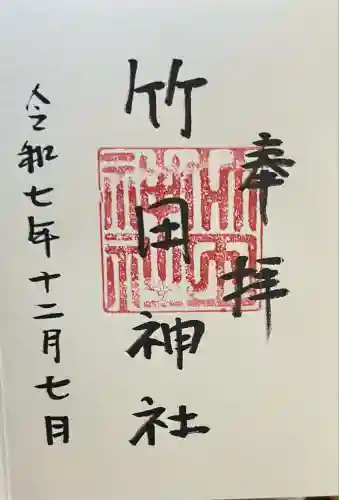 奉拝
竹田神社
令和七年十二月七日